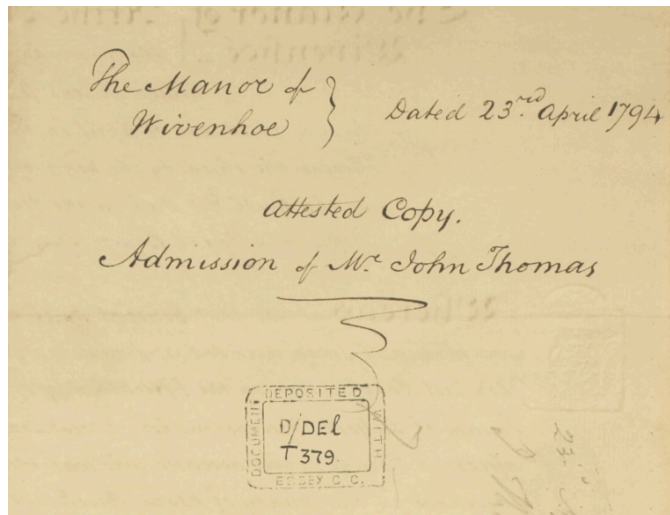 The Manor of
Wivenhoe } Dated 23.rd April 1794
Attested Copy.
Admission of Mr. John Thomas
DOCUMENT DEPOSITED WITH
ESSEX C.C.
D/DEl
T379.